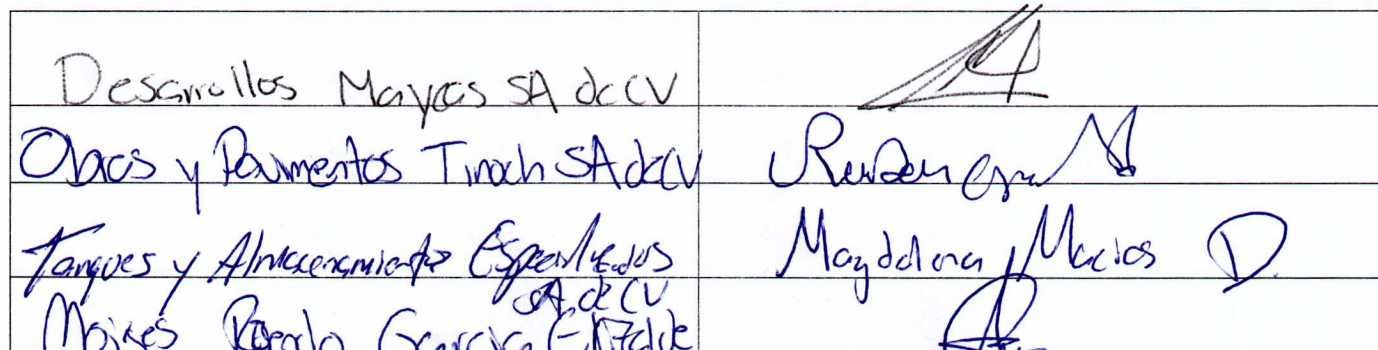 Desarrollos Maycas SA de CV
Obras y Pavimentos Tinoch SA de CV Ruben
Tanques y Almacenamiento Especializados Magdalena Macias D.
SA de CV
Moises Garcia Elizalde